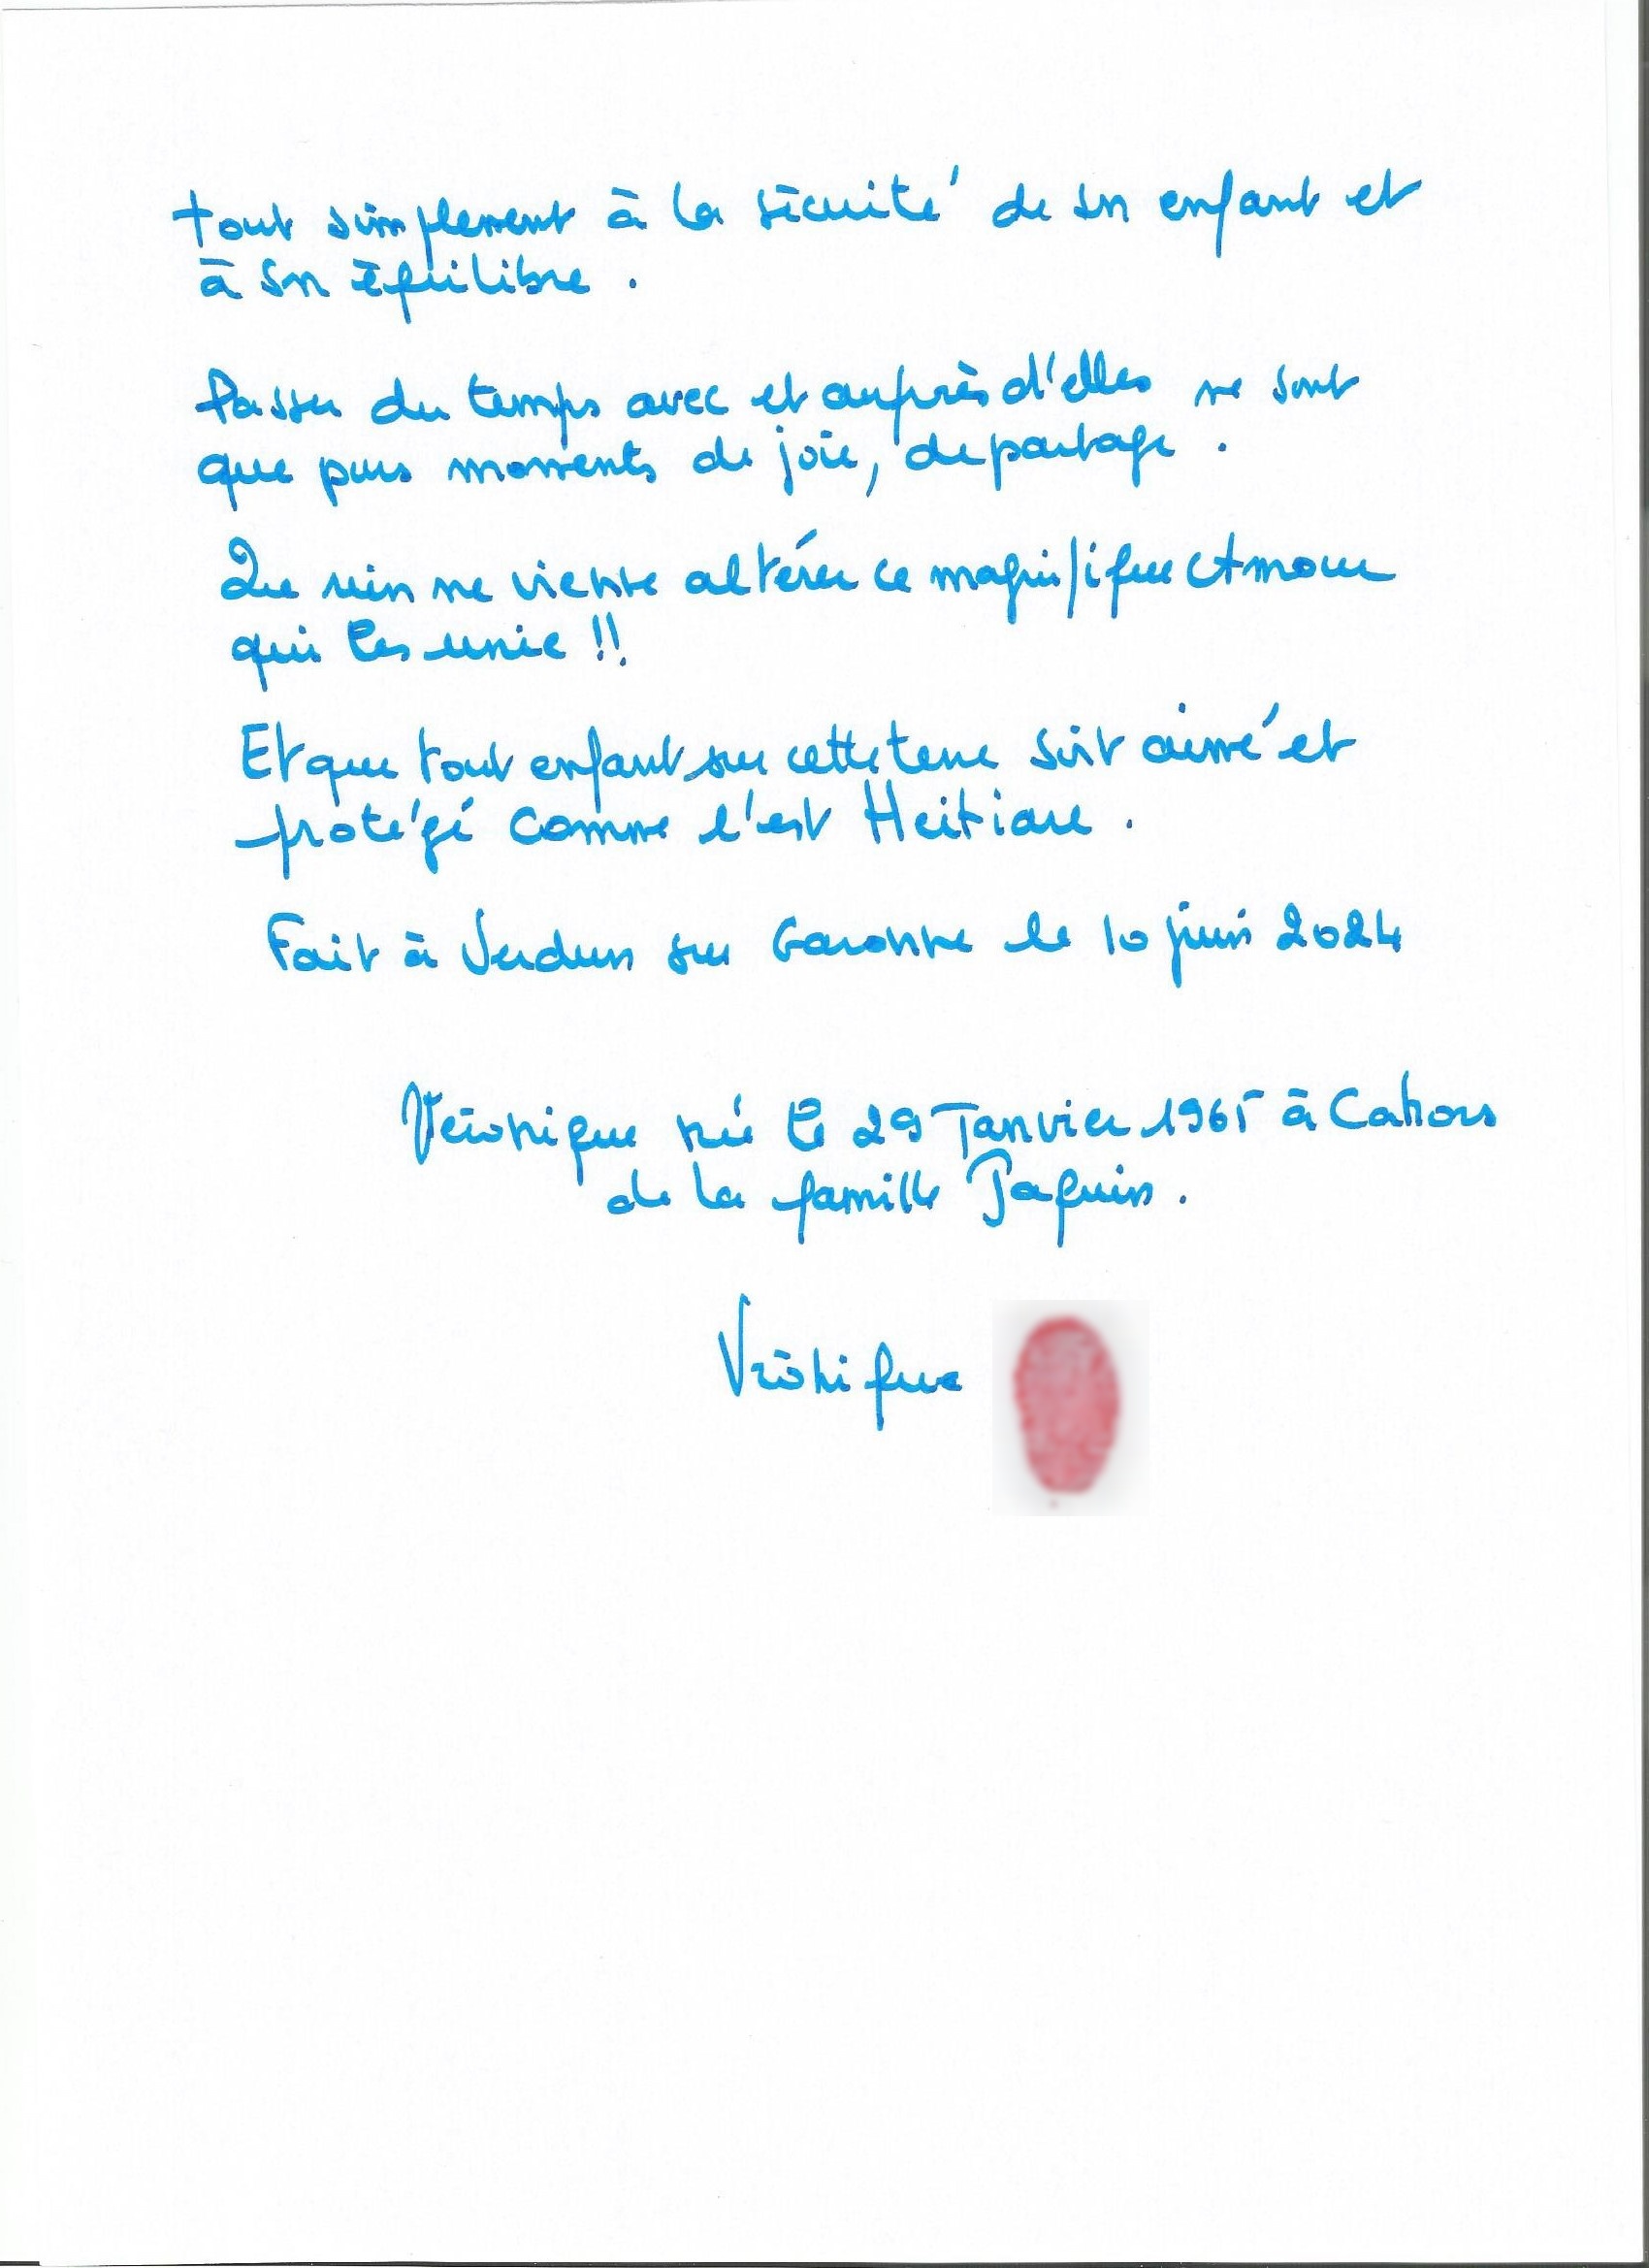 tout simplement à la sécurité de son enfant et
à son équilibre .
Passer du temps avec et auprès d'elles ne sont
que purs moments de joie, de partage .
Que rien ne vienne altérer ce magnifique Amour
qui les unie !!
Et que tout enfant sur cette terre soit aimé et
protégé comme l'est Heitiare .
Fait à Verdun sur Garonne le 10 juin 2024
Véronique née le 29 Janvier 1965 à Cahors
de la famille Paquin .
Véronique